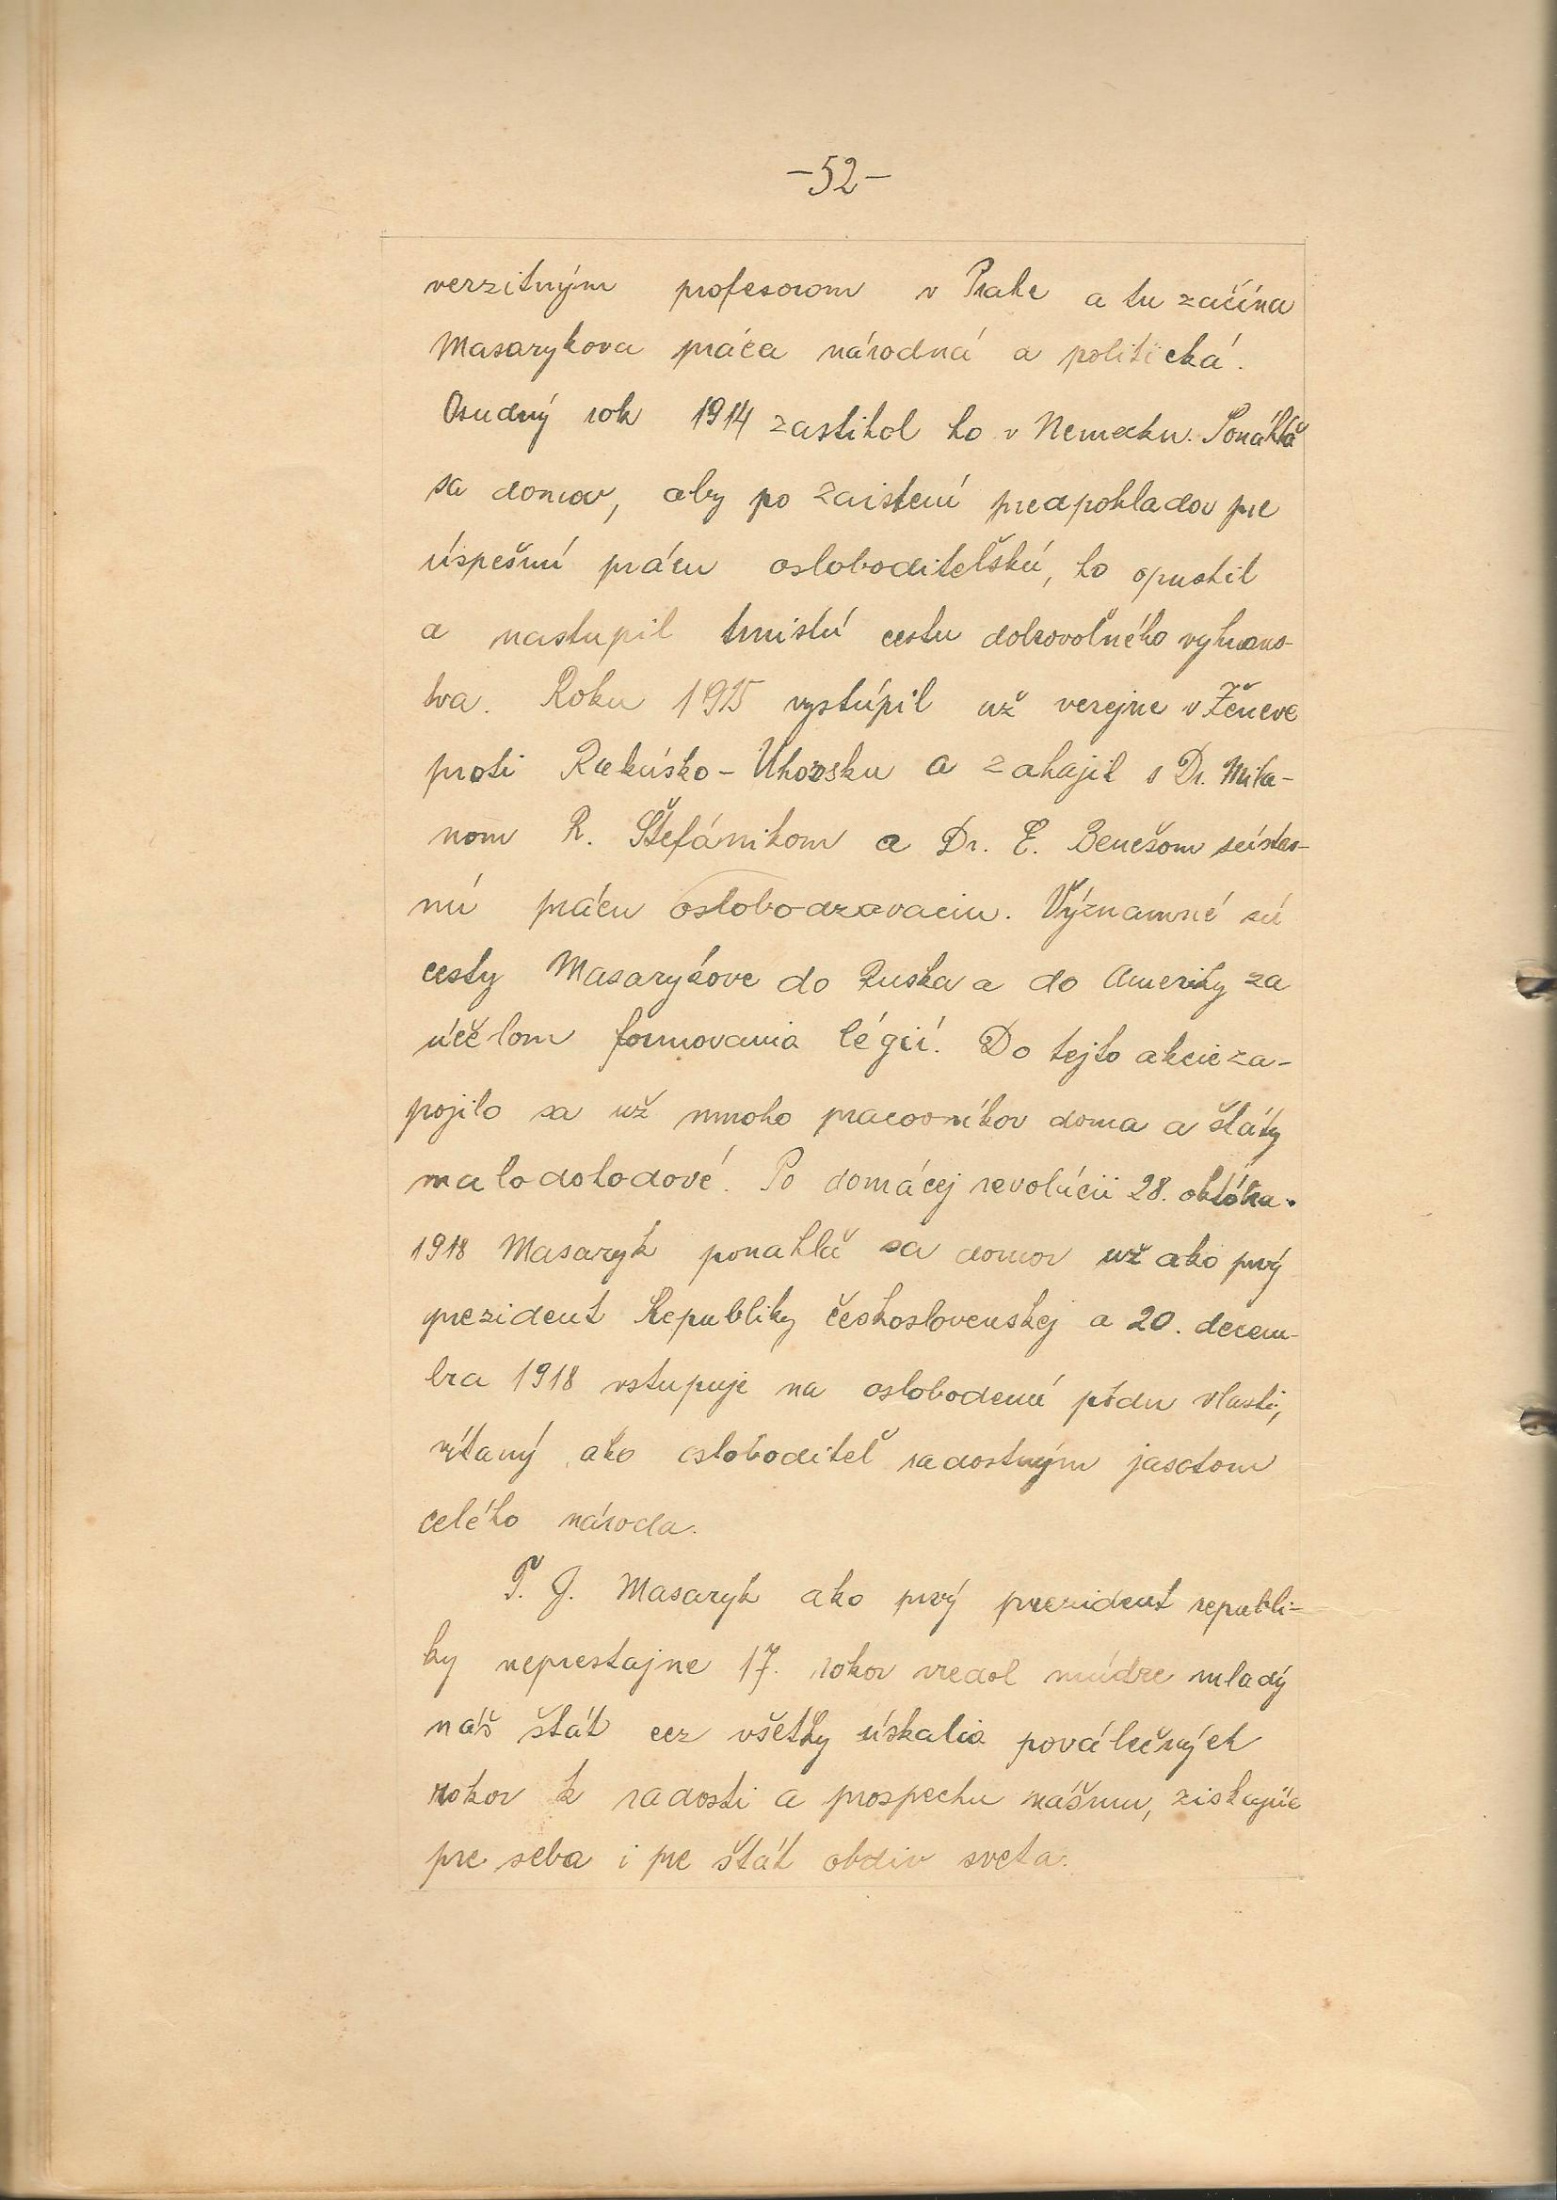 -52-
verzitným profesorom v Prahe a tu začína
Masarykova práca národná a politická.
Osudný rok 1914 zastihol ho v Nemecku. Ponáhľa
sa domov, aby po zaistení predpohladov pre
úspešnú prácu osloboditeľskú, ho opustil
a nastupil trnistú cestu dobrovoľného vyhnans-
tva. Roku 1915 vystúpil už verejne v Ženeve
proti Rakúsko-Uhorsku a zahajil s Dr. Mila-
nom R. Štefánikom a Dr. E. Benešom sústav-
nú prácu oslobodzovaciu. Významné sú
cesty Masarykove do Ruska a do Ameriky za
účelom formovania légií. Do tejto akcie za-
pojilo sa už mnoho pracovníkov doma a štáty
malodohodové. Po domácej revolúcii 28. októbra
1918 Masaryk ponahľa sa domov už ako prvý
prezident Republiky československej a 20. decem-
bra 1918 vstupuje na oslobodenú pôdu vlasti,
vítaný ako osloboditeľ radostným jasotom
celého národa.
T. G. Masaryk ako prvý prezident republi-
ky neprestajne 17. rokov viedol múdre mladý
náš štát cez všetky úskalia poválečných
rokov k radosti a prospechu nášmu, získajúc
pre seba i pre štát obdiv sveta.